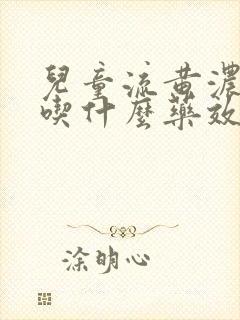 兒童流黄濃
喫什麼藥效
涂明心